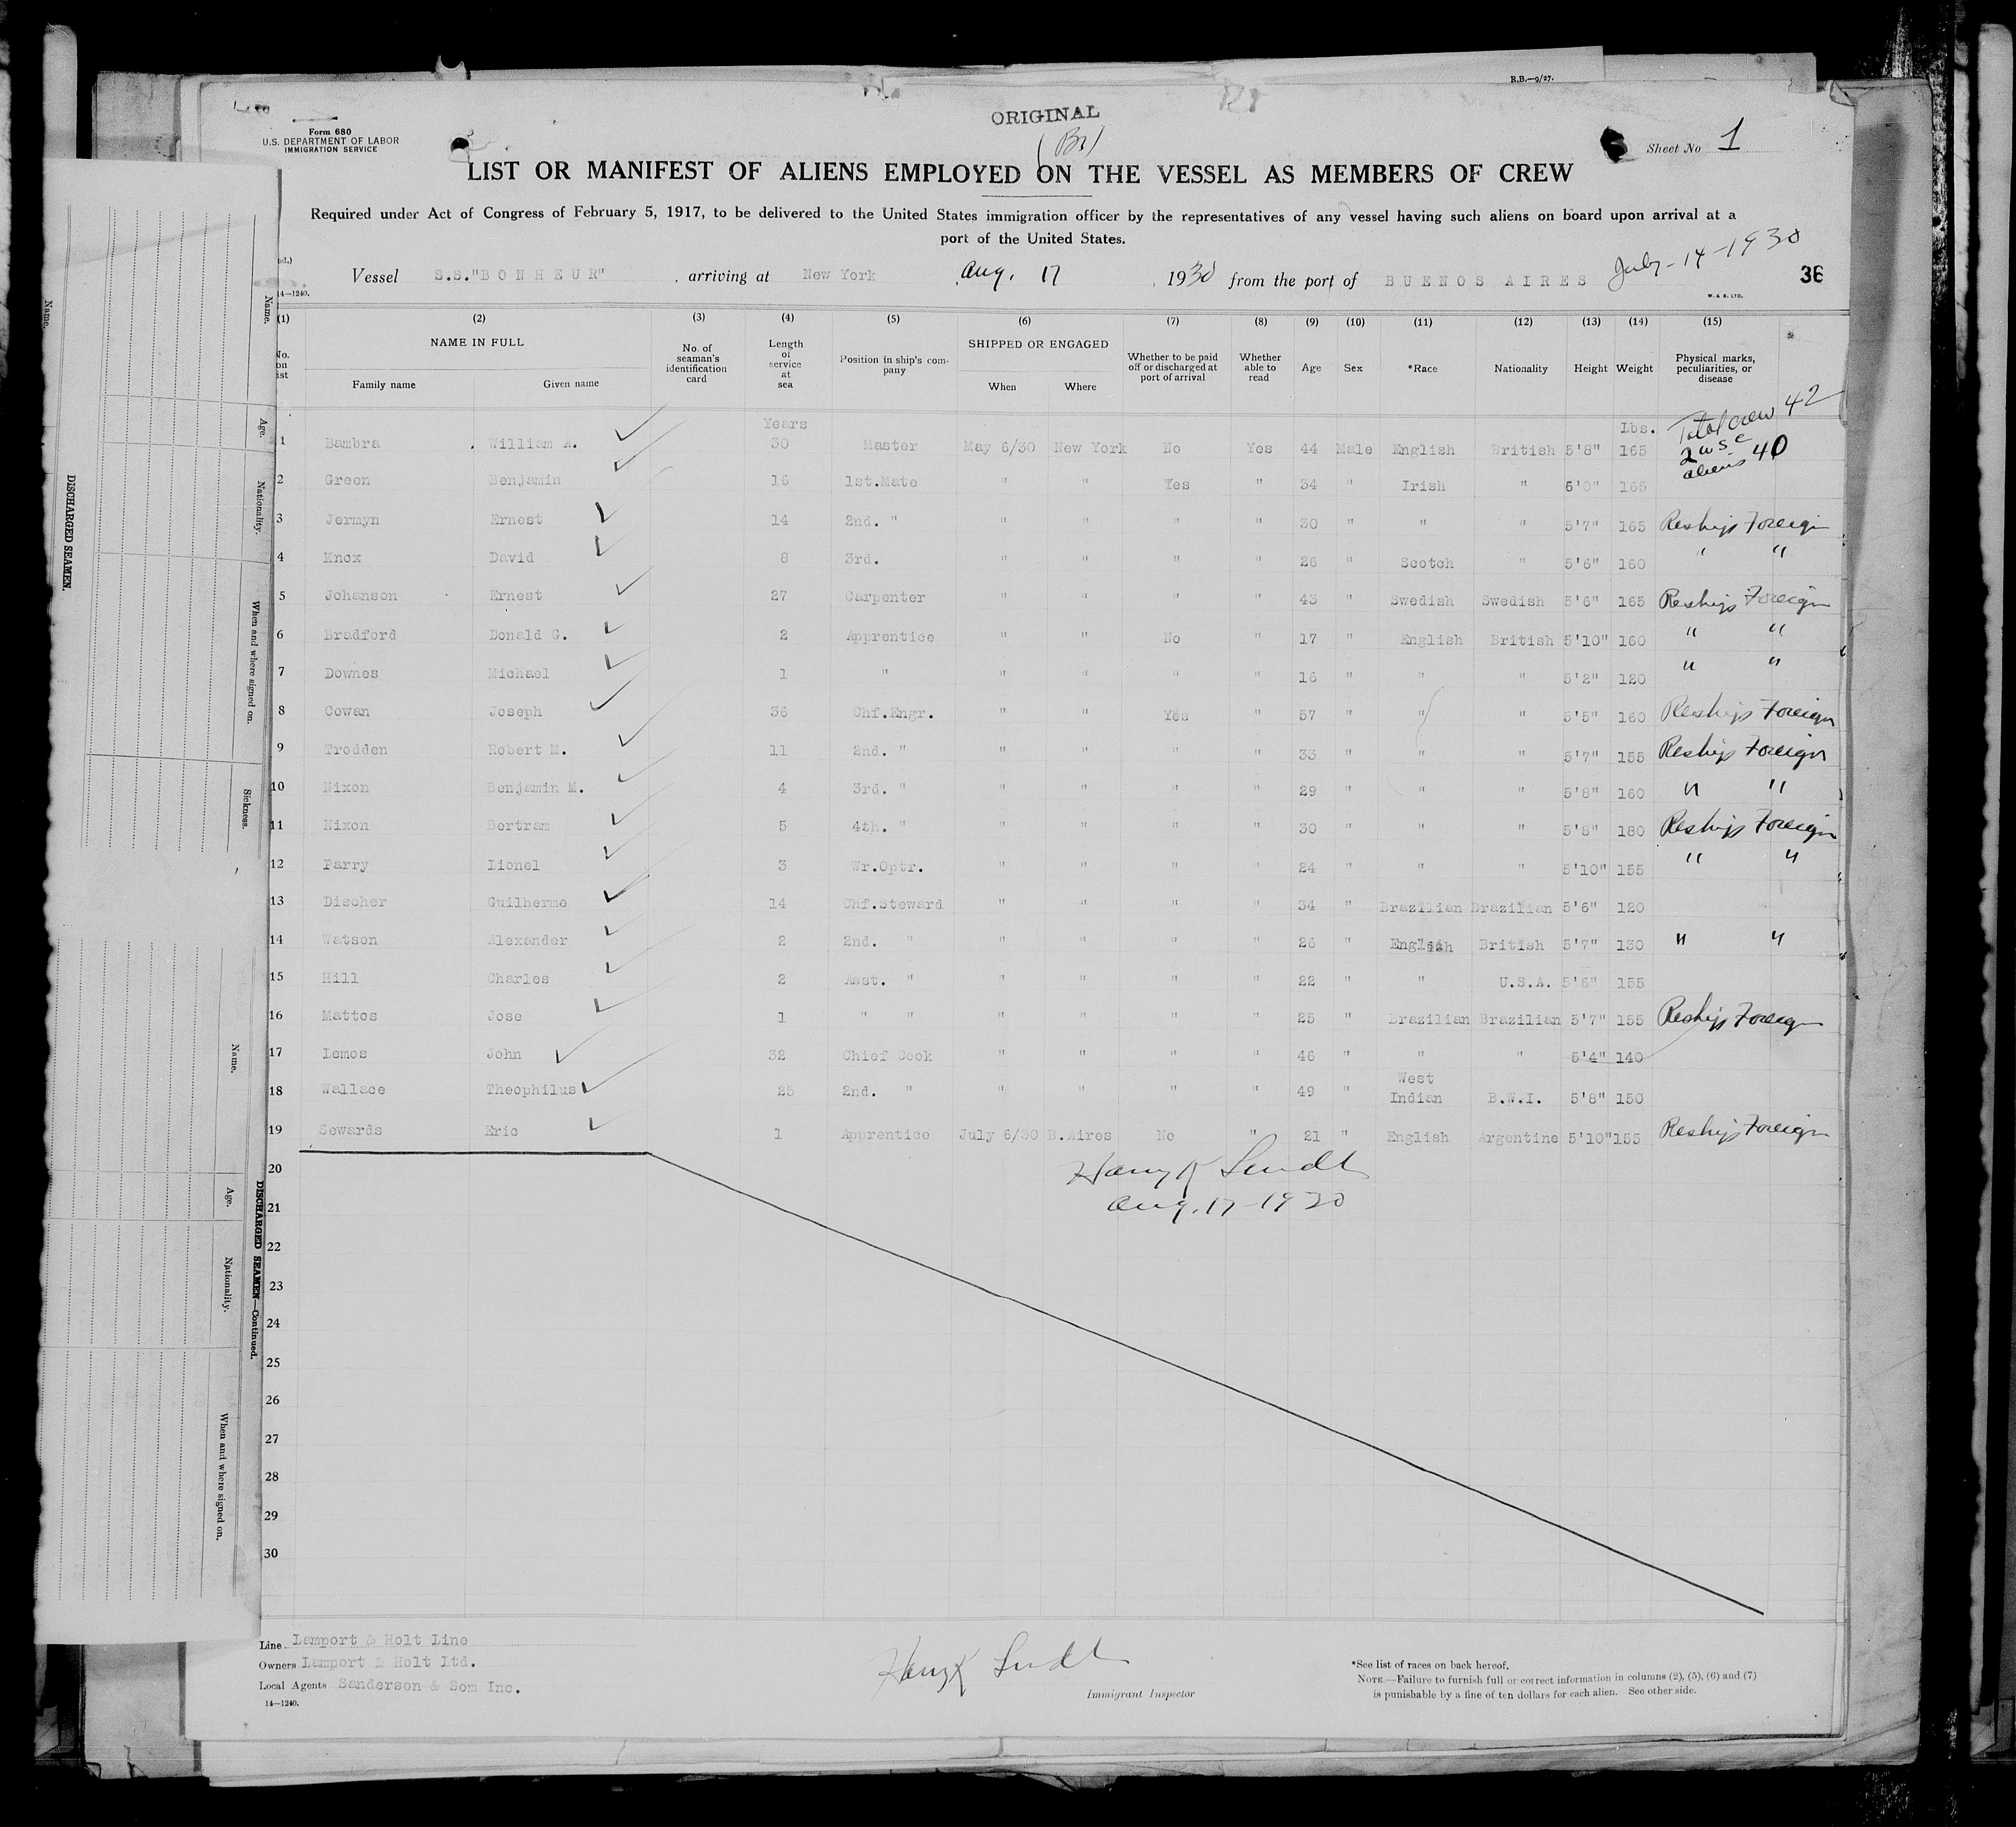 R.B.—9/27.
ORIGINAL
(Br)
Form 680
U.S. DEPARTMENT OF LABOR
IMMIGRATION SERVICE
Sheet No 1
LIST OR MANIFEST OF ALIENS EMPLOYED ON THE VESSEL AS MEMBERS OF CREW
Required under Act of Congress of February 5, 1917, to be delivered to the United States immigration officer by the representatives of any vessel having such aliens on board upon arrival at a
port of the United States.
Vessel S.S."BONHEUR" , arriving at New York Aug. 17 , 1930 from the port of BUENOS AIRES July-14-1930 36
14—1240.
W. & S. LTD.
(1) (2) (3) (4) (5) (6) (7) (8) (9) (10) (11) (12) (13) (14) (15)
No. on list NAME IN FULL Family name Given name No. of seaman's identification card Length of service at sea Position in ship's company SHIPPED OR ENGAGED When Where Whether to be paid off or discharged at port of arrival Whether able to read Age Sex *Race Nationality Height Weight Physical marks, peculiarities, or disease
Years Lbs. Total crew 42
1 Bambra William A. 30 Master May 6/30 New York No Yes 44 Male English British 5'8" 165 2 USC
aliens 40
2 Green Benjamin 16 1st.Mate " " Yes " 34 " Irish " 6'0" 165
3 Jermyn Ernest 14 2nd. " " " " " 30 " " " 5'7" 165 Reships Foreign
4 Knox David 8 3rd. " " " " 26 " Scotch " 5'6" 160 " "
5 Johanson Ernest 27 Carpenter " " " " 43 " Swedish Swedish 5'6" 165 Reships Foreign
6 Bradford Donald G. 2 Apprentice " " No " 17 " English British 5'10" 160 " "
7 Downes Michael 1 " " " " " 16 " " " 5'2" 120 " "
8 Cowan Joseph 36 Chf.Engr. " " Yes " 57 " " " 5'5" 160 Reships Foreign
9 Trodden Robert M. 11 2nd. " " " " " 33 " " " 5'7" 155 Reships Foreign
10 Nixon Benjamin M. 4 3rd. " " " " " 29 " " " 5'8" 160 " "
11 Nixon Bertram 5 4th. " " " " " 30 " " " 5'8" 180 Reships Foreign
12 Parry Lionel 3 Wr.Optr. " " " " 24 " " " 5'10" 155 " "
13 Discher Guilherme 14 Chf.Steward " " " " 34 " Brazilian Brazilian 5'6" 120
14 Watson Alexander 2 2nd. " " " " " 26 " English British 5'7" 130 " "
15 Hill Charles 2 Asst. " " " " " 22 " " U.S.A. 5'6" 155
16 Mattos Jose 1 " " " " " " 25 " Brazilian Brazilian 5'7" 155 Reships Foreign
17 Lemos John 32 Chief Cook " " " " 46 " " " 5'4" 140
18 Wallace Theophilus 25 2nd. " " " " " 49 " West Indian B.W.I. 5'8" 150
19 Sewards Eric 1 Apprentice July 6/30 B.Aires No " 21 " English Argentine 5'10" 155 Reships Foreign
20
21 Aug. 17-1930
22
23
24
25
26
27
28
29
30
Line Lamport & Holt Line
Owners Lamport & Holt Ltd.
Local Agents Sanderson & Som Inc.
14—1240.
Immigrant Inspector
*See list of races on back hereof.
NOTE.—Failure to furnish full or correct information in columns (2), (5), (6) and (7)
is punishable by a fine of ten dollars for each alien. See other side.
DISCHARGED SEAMEN.
Name.
Name.
Age.
Nationality.
When and where signed on.
Sickness.
DISCHARGED SEAMEN—Continued.
Name.
Age.
Nationality.
When and where signed on.